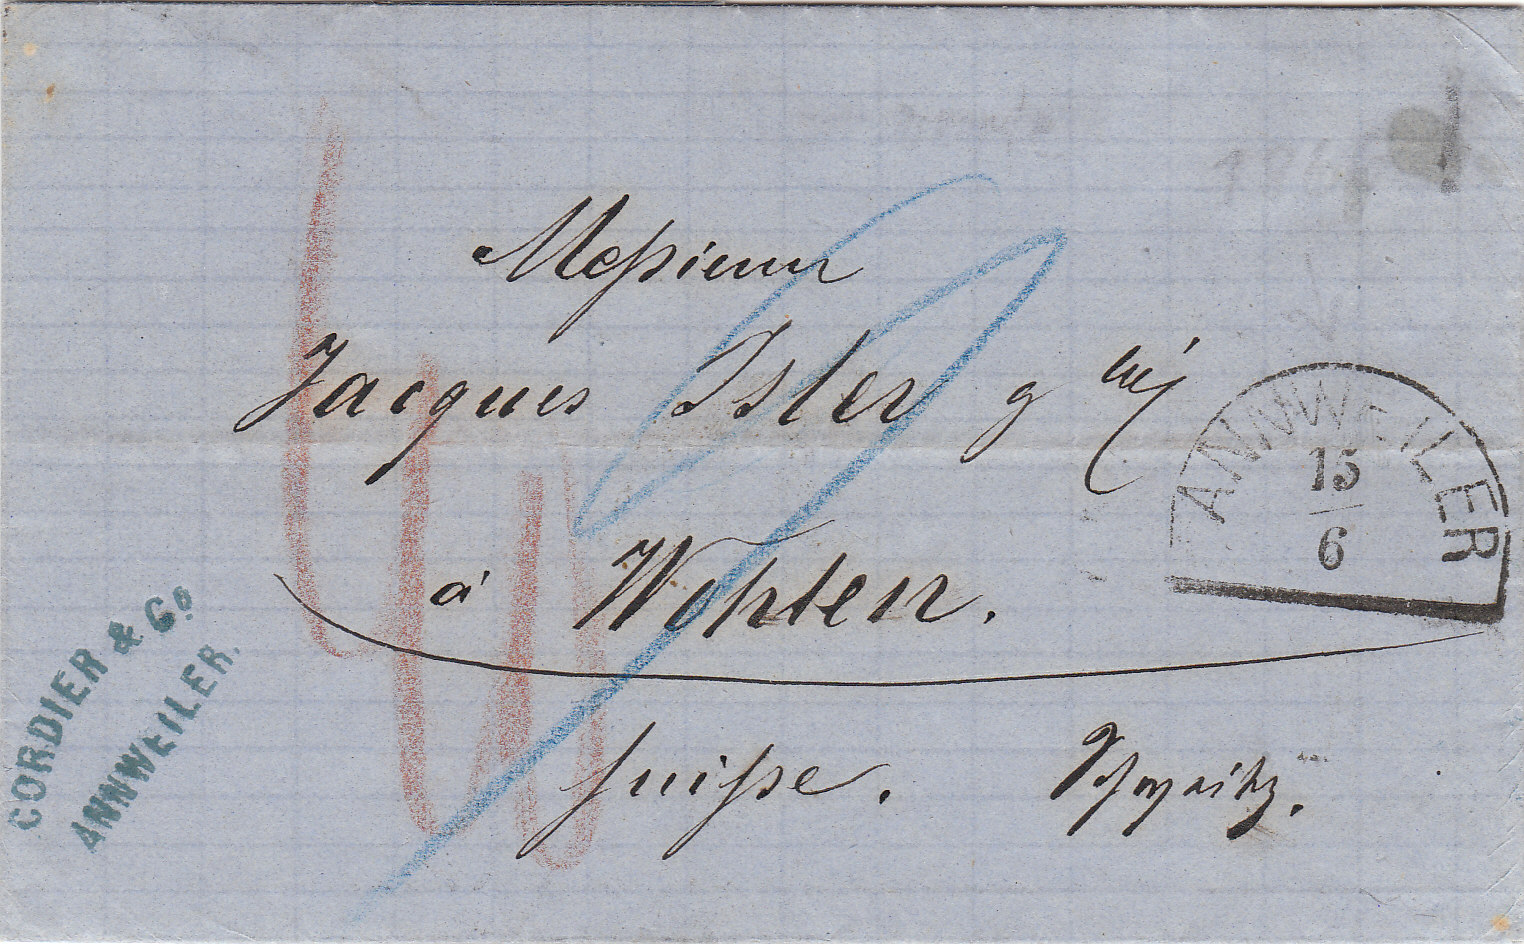 Messieurs
Jacques Isler & Cie
à Wohlen.
Suisse. Schweitz.
ANNWEILER
15
6
CORDIER & Co
ANNWEILER.